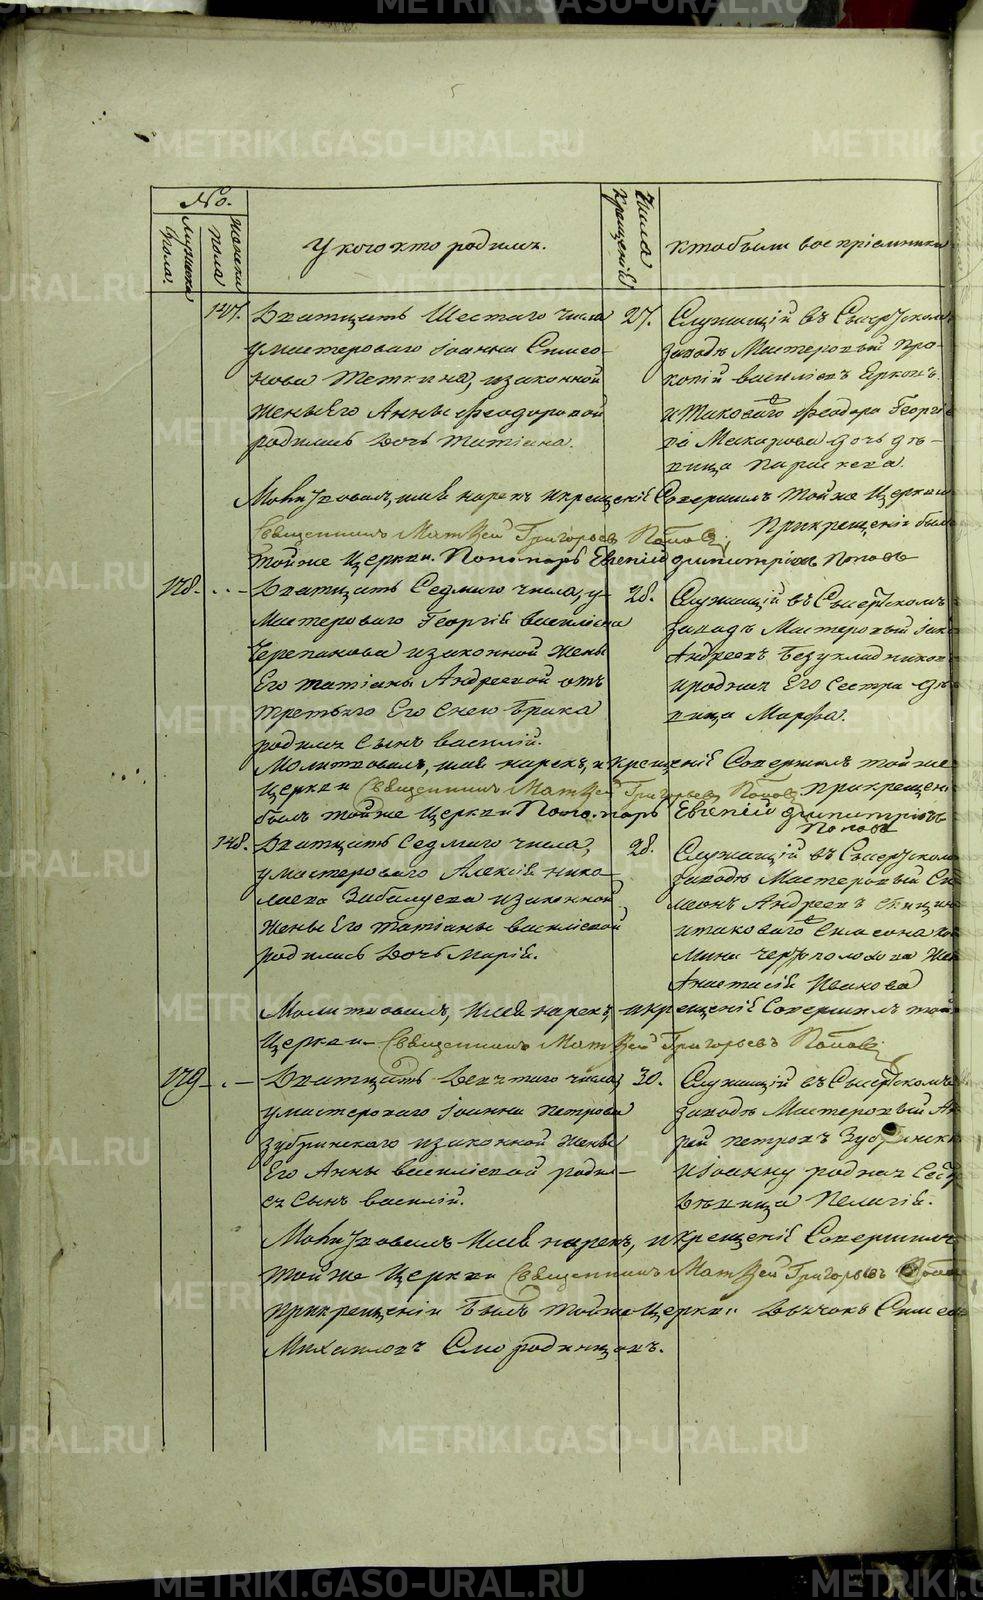 METRIKI.GASO-URAL.RU
No.
мужеска пола.
женска пола
У кого кто родился.
Числа крещенія
Кто были воспріемники
147.
Дватцать Шестаго числа
у мастероваго Іоанна Симео-
нова Теткина, и законной
жены Его Анны Феодоровой
родилась дочь Татіана.
27.
Служащій въ Сысертском
заводѣ Мастеровый Про-
копій Василіевъ
и таковаго Феодора Георгіе
ва Макарова дочь дѣ-
вица Параскева.
Молитвовалъ, имя нарекъ и крещеніе Совершилъ той же Церкви
Священникъ Матвей Григорьевъ Поповъ, При крещеніи былъ
той же Церкви Пономарь Евгеній Димитріевъ Поповъ
128.
Дватцать Седмаго числа, у
Мастероваго Георгія Василіева
Черепанова и законной жены
Его Татіаны Андреевой отъ
третьяго Его Снею брака
родился Сынъ Василій.
28.
Служащій въ Сысертскомъ
заводѣ Мастеровый
Андреевъ Безукладников
и родная Его Сестра дѣ
вица Марфа.
Молитвовалъ, имя нарекъ, и крещеніе Совершилъ той же
Церкви Священникъ Матвей Григорьевъ Поповъ При крещен
былъ той же Церкви Пономарь Евгеній Димитріевъ
Поповъ
148.
Дватцать Седмаго числа,
у мастероваго Алексія Нико-
лаева Забалуева и законной
жены Его Татіаны Василіевой
родилась дочь Марія.
28.
Служащій въ Сысертском
заводѣ Мастеровый Си
меонъ Андреевъ
и таковаго Симеона
жен
Анастасія Иванова
Молитвовалъ, Имя нарекъ, и крещеніе Совершилъ той
Церкви Священникъ Матвей Григорьевъ Поповъ
129
Дватцать Девятаго числа,
у мастероваго Іоанна Петрова
Зубринскаго и законной жены
Его Анны Василіевой роди-
ся Сынъ Василій.
30.
Служащій въ Сысертскомъ
заводѣ Мастеровый Ан
рей Петровъ Зубринск
и Іоанну родная Сест
дѣвица Пелагія.
Молитвовалъ Имя нарекъ, и крещеніе Совершилъ
той же Церкви Священникъ Матвей Григорьевъ Попов
При крещеніи былъ той же Церкви Дьячокъ Симео
Михаиловъ Смородинцовъ.